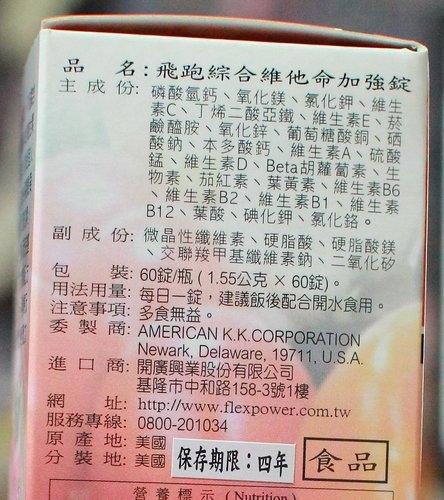 品 名:飛跑綜合維他命加強錠
主成份:磷酸氫鈣、氧化鎂、氯化鉀、維生
素C、丁烯二酸亞鐵、維生素E、菸
鹼醯胺、氧化鋅、葡萄糖酸銅、硒
酸鈉、本多酸鈣、維生素A、硫酸
錳、維生素D、Beta胡蘿蔔素、生
物素、茄紅素、葉黃素、維生素B6
、維生素B2、維生素B1、維生素
B12、葉酸、碘化鉀、氯化鉻。
副成份:微晶性纖維素、硬脂酸、硬脂酸鎂
、交聯羧甲基纖維素鈉、二氧化矽
包 裝:60錠/瓶(1.55公克×60錠)。
用法用量:每日一錠,建議飯後配合開水食用。
注意事項:多食無益。
委製商:AMERICAN K.K.CORPORATION
Newark, Delaware, 19711, U.S.A.
進口商:開廣興業股份有限公司
基隆市中和路158-3號1樓
網 址:http://www.flexpower.com.tw
服務專線:0800-201034
原產地:美國
分裝地:美國 保存期限:四年 食品
營養標示(Nutrition)